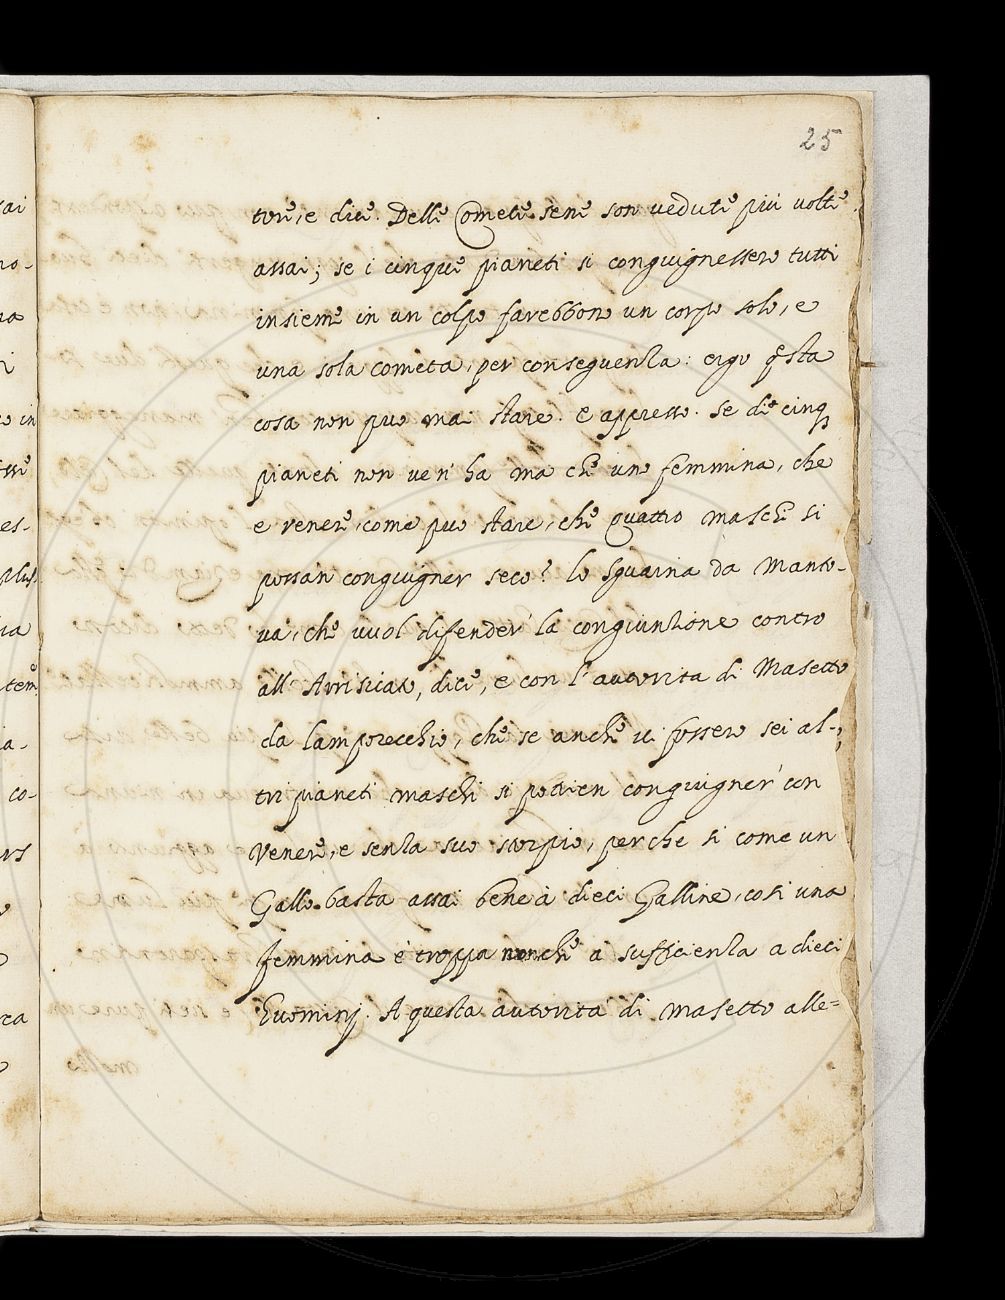 25
tore, e dice. Delle Comete sene son vedute più volte
assai; se i cinque pianeti si congiugnessero tutti
insieme in un colpo farebbono un corpo solo, e
una sola cometa, per conseguenza: ergo qsta
cosa non puo mai stare. e appresso. se di cinq
pianeti non ve n'ha ma che uno femmina, che
e venere, come puo stare, che quattro maschi si
possan congiugner seco? lo Sguaina da Manto-
va, che vuol difender la congiunzione contro
all Arrisicato, dice, e con l'autorita di Masetto
da lamporecchio, che se anche vi fossero sei al-
tri pianeti maschi si potrien congiugner con
Venere, e senza suo scorpio, perche si come un
Gallo basta assai bene à dieci Galline, così una
femmina è troppa nonche a sufficienza a dieci
huominj. A questa autorita di Masetto alle=